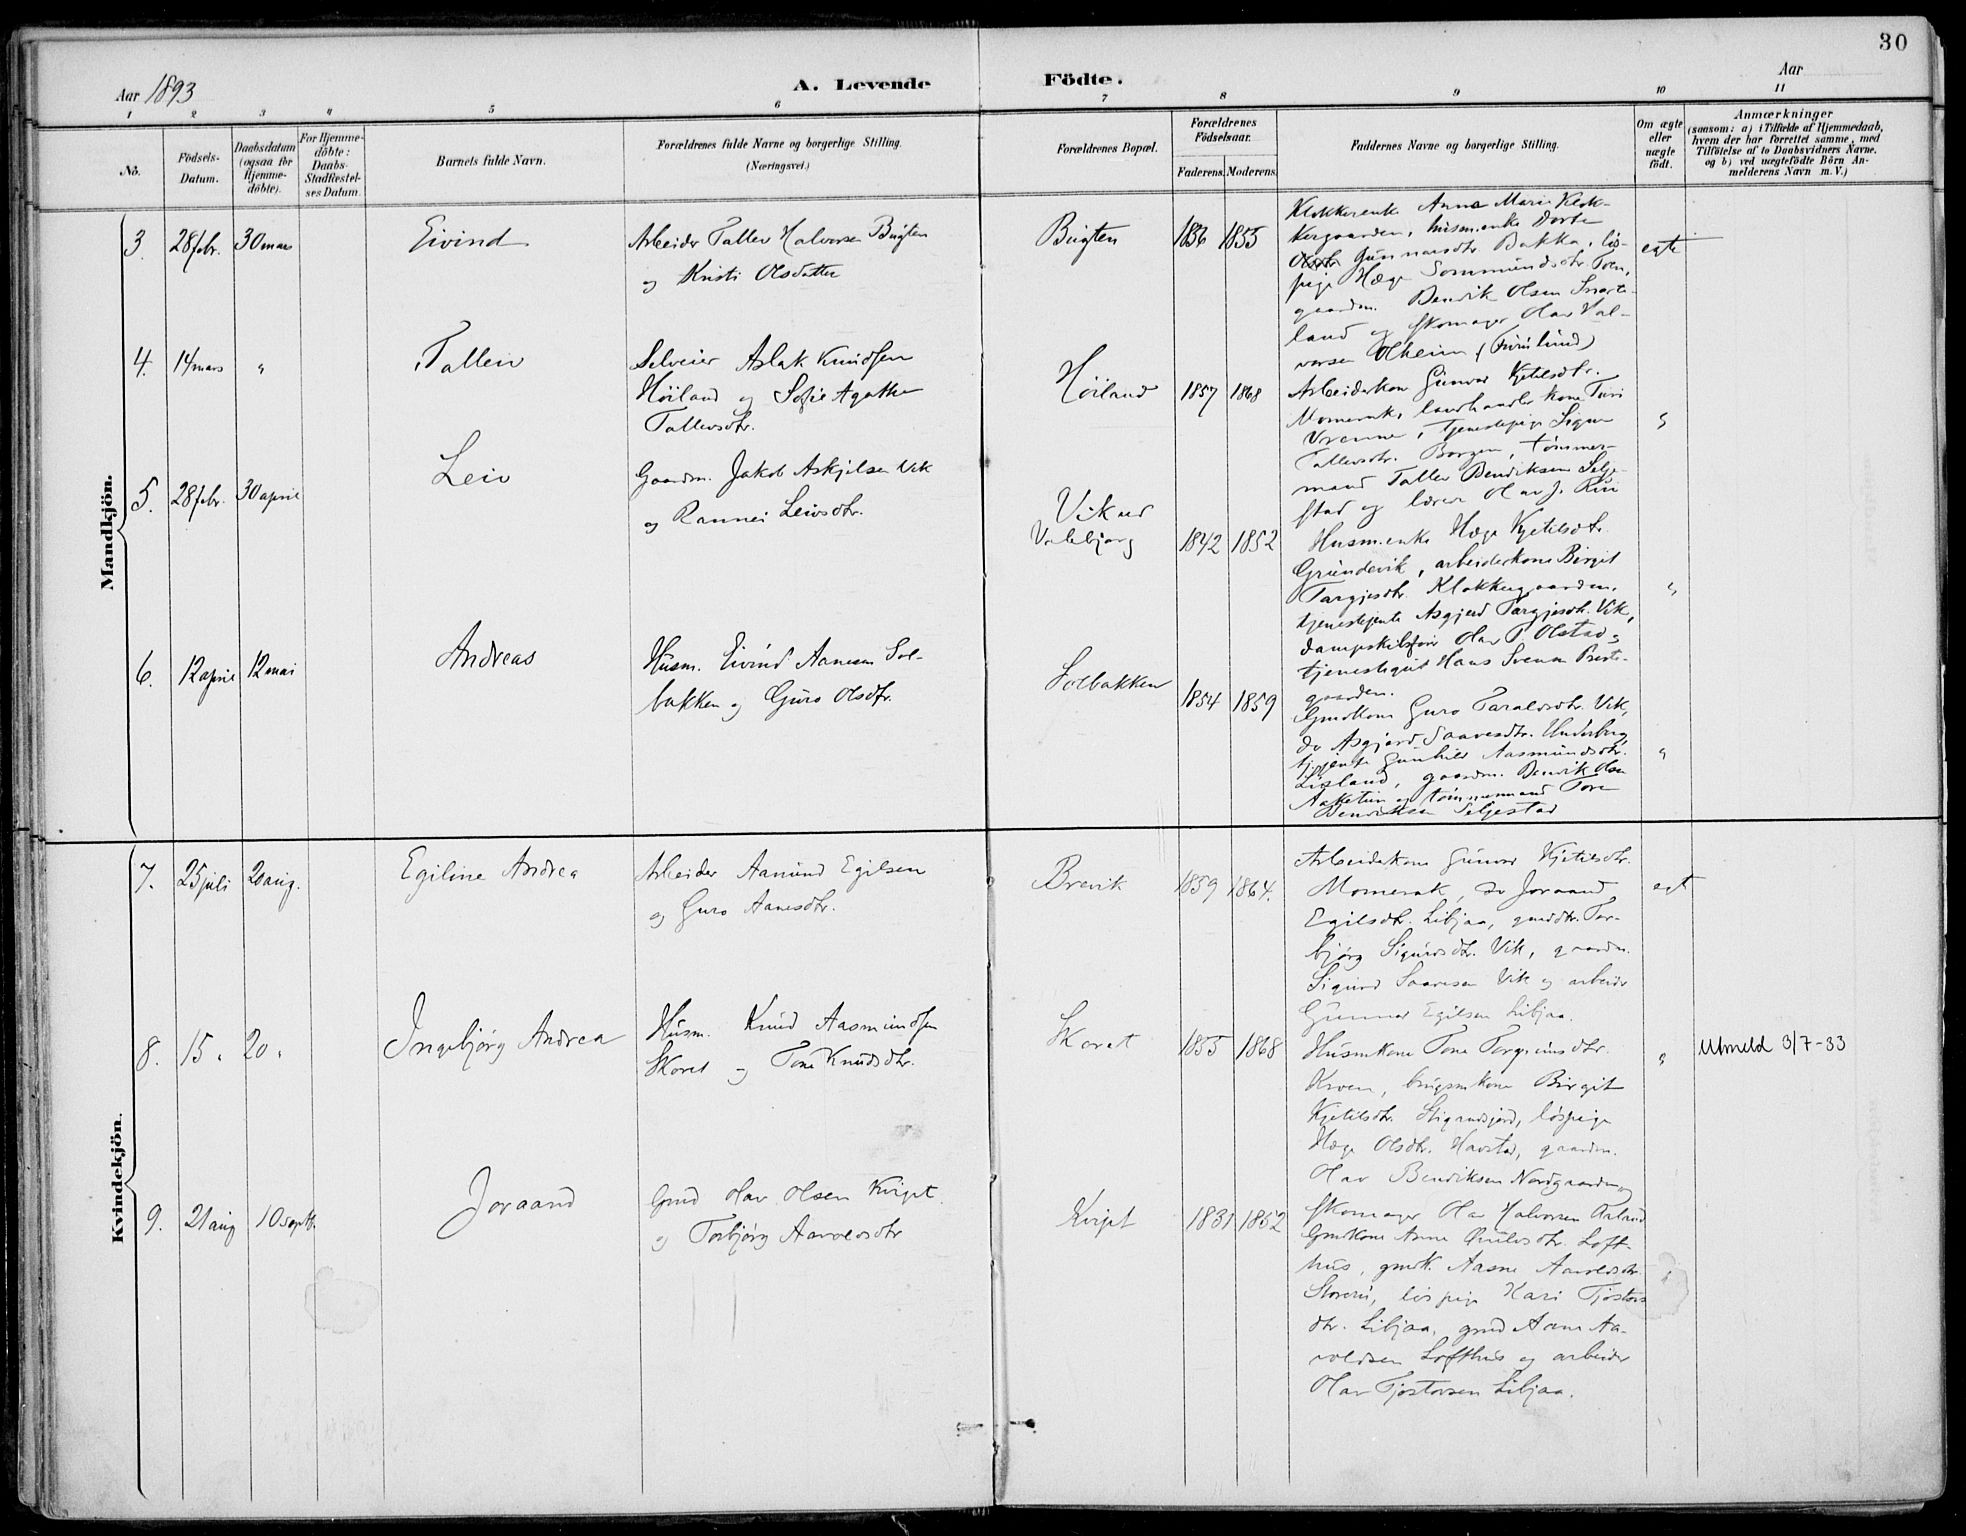 30
Aar 1893
A. Levende Födte.
Aar
1 2 3 4 5 6 7 8 9 10 11
No.
Födsels-Datum.
Daabsdatum (ogsaa for Hjemme-döbte).
For Hjemme-döbte: Daabs-Stadfæstel-ses Datum.
Barnets fulde Navn.
Forældrenes fulde Navne og borgerlige Stilling.
(Næringsvei.)
Forældrenes Bopæl.
Forældrenes Födselsaar.
Faderens. Moderens.
Faddernes Navne og borgerlige Stilling.
Om ægte eller uægte födt.
Anmærkninger
(saasom: a) i Tilfælde af Hjemmedaab, hvem der har forrettet samme, med Tilföielse af to Daabsvidners Navne. og b) ved uægtefödte Börn An-melderens Navn m. V.)
Mandkjön.
3. 28 febr. 30 mars Eivind
Arbeider Tallev Halvorsen Bugten
og Kristi Olsdatter
Bugten 1836 1855
Klokkerenke Anna Marie Klok-
kergaarden, husm.enke Dorte
Gunnarsdtr. Bakka, løs-
pige Hæge Sommundsdtr. Toen,
gaardm. Bendik Olsen Snarte-
land og skomager Olav Hal-
vorsen Olheim (Furulund)
egte
4. 14 mars " Talleiv
Selveier Aslak Knudsen
Høiland og Sofie Agathe
Tallevsdtr.
Høiland 1857 1868
Arbeiderkone Gunvor Kjetilsdtr.
Momrak, landhandler kone Turi
Vrenne, tjenestepige Signe
Tallevsdtr. Borgen, tømmer-
mand Tallev Bendiksen Selje-
stad og lærer Olav J. Rui
"
5. 28 febr. 30 april Leiv
Gaardm. Jakob Askjelsen Vik
og Rannei Leivsdtr.
Vik
1842 1852
Husm.enke Hæge Kjetilsdtr.
Grundevik, arbeiderkone Birgit
Targjesdtr. Klokkergaarden,
tjenestejente Asgjerd Targjesdtr. Vik,
dampskibsfører Olav T. Olstad og
tjenestegut Hans Svensen Preste-
gaarden.
"
6. 12 april 12 mai Andreas
Husm. Eivind Aanesen Sol-
bakken og Guro Olsdtr.
Solbakken 1854 1859
Gmdkone Guro Taraldsdtr. Vik,
do Asgjerd Saavesdtr. Underberg
tj.jente Gunhild Aasmundsdtr.
Lisland, gaardm. Bendik Olsen
Aaketun og tømmermand Tore
Bendiksen Seljestad
"
Kvindekjön.
7. 25 juli 20 aug. Egiline Andrea
Arbeider Aamund Egilsen
og Guro Aanesdtr.
Brevik 1859 1864.
Arbeiderkone Gunvor Kjetilsdtr.
Momrak, do Joraand
Egilsdtr. Libjaa, gmddtr. Tor-
bjørg Sigurdsdtr. Vik, gaardm.
Sigurd Saavesen Vik og arbeider
Gunnar Egilsen Libjaa.
egt
8. 15 " 20 " Ingebjørg Andrea
Husm. Knud Aasmundsen
Skoret og Tone Knudsdtr.
Skoret 1855 1868
Husmkone Tone Torgrimsdtr.
Kroen, brugsmkone Birgit
Kjetilsdtr. Stigandsjord, løspige
Hæge Olsdtr. Havstad, gaardm.
Olav Bendiksen Nordgaarden og
skomager Olav Halvorsen Aaland
"
Utmeld 3/7-33
9. 21 aug 10 septb. Joraand
Gmd Olav Olsen Kvipt
og Torbjørg Aavoldsdtr
Kvipt 1831 1852
Gmdkone Anne Loft-
hus, gmdk. Aasne Aavoldsdtr.
løspige Kari Tjostovs
dtr. Libjaa, gmd Aanon Aa-
voldsen Lofthus og arbeider
Olav Tjostovsen Libjaa.
"